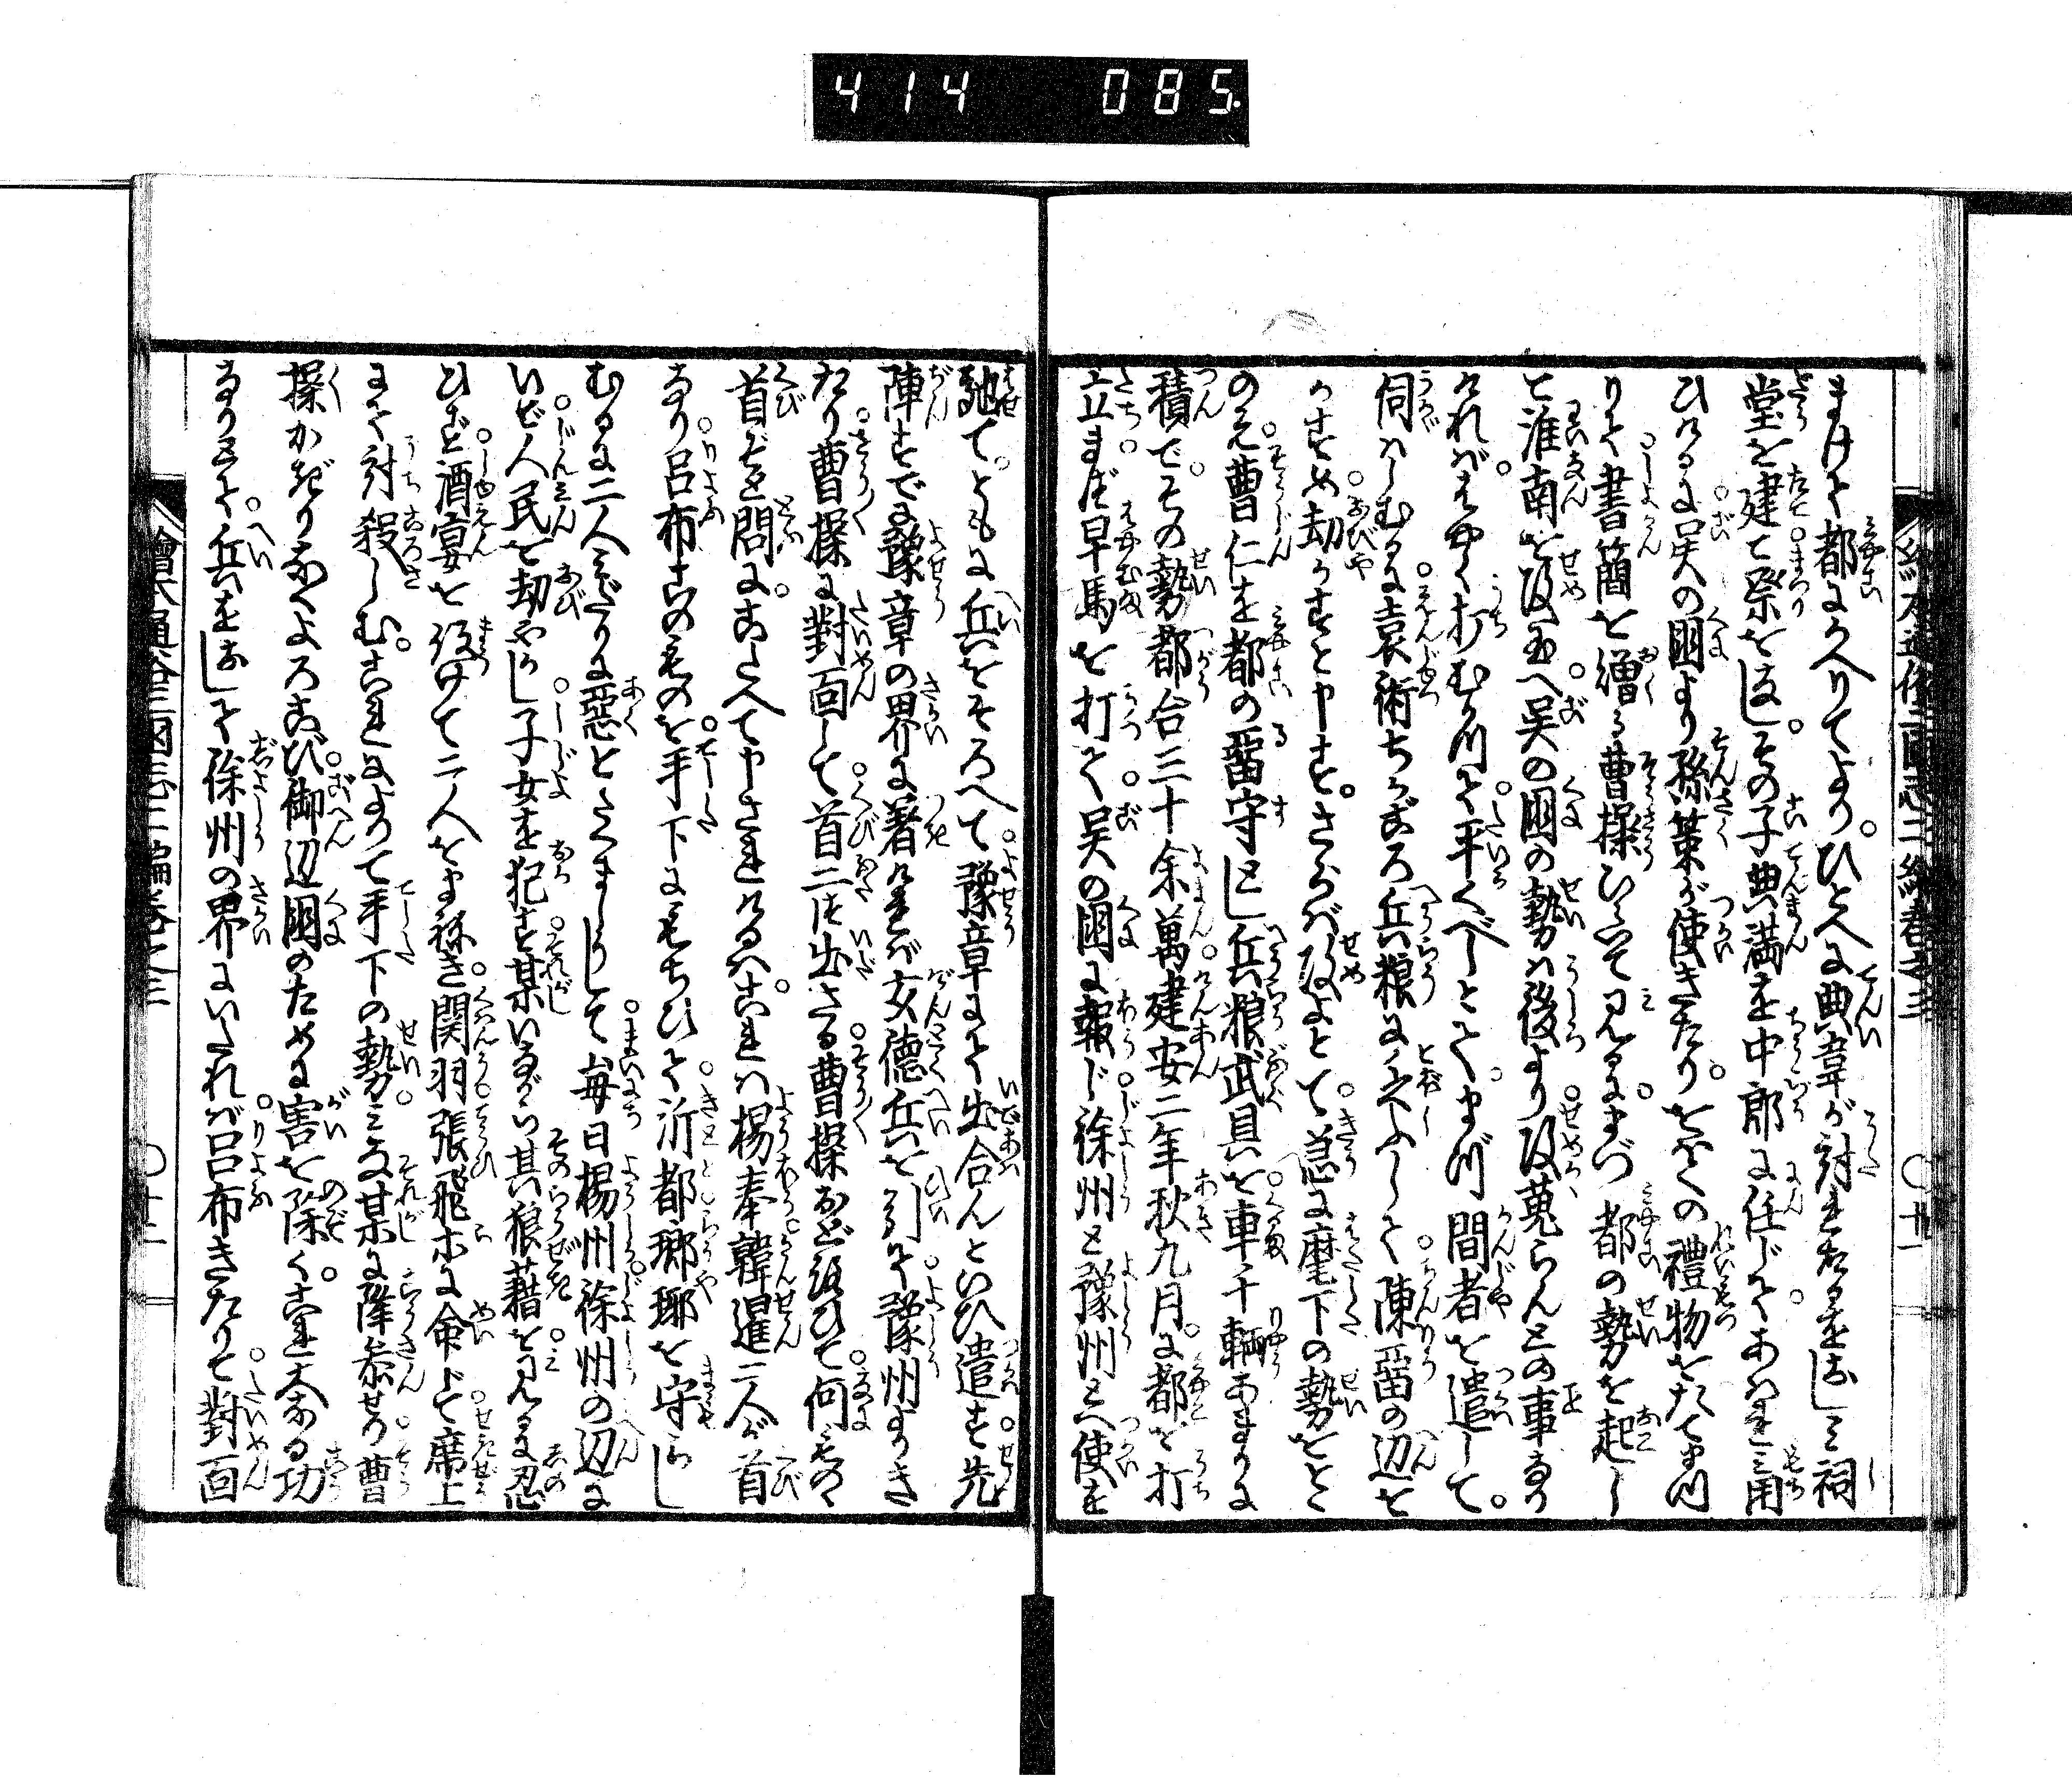 414 085
まけて都にかへりてより。ひとへに典韋が討れたるをなし三祠
堂を建て祭をほし。その子典満を中郎に任じてあはれみ用
ひけるに呉の国より孫策が使きたり。をほくの禮物をたてまつ
りて書簡を贈る曹操ひらいて見るにまづ都の勢を起し
と淮南を攻玉へ呉の国の勢は後より攻蒐らんとの事なり
けれバはやく打むかつて平ぐべしとてまづ間者を遣して。
伺はしむるに袁術ちかごろ兵粮に乏ふして陳留の辺を
かすめ劫かすと申す。さらバ攻よとて急に麾下の勢をとゝ
のえ曹仁を都の留守とし兵粮武具を車千輌あまりに
積で。その勢都合三十余萬建安二年秋九月に都を打
立まづ早馬を打て呉の国に報じ徐州と豫州とへ使を
馳て。ともに兵をそろへて豫章にて出合んといひ遣す先
陣すでに豫章の界に着ければ玄徳兵を引て豫州よりき
たり曹操に對面して首二ツ出さる曹操おどろひて何ものゝ
首ぞと問に。こたへて申されけるハ。これは楊奉韓暹二人が首
なり呂布このものを手下にもちひて沂都瑯琊を守らし
むるに二人みだりに惡をたくましうして毎日楊州徐州の辺に
いで人民を劫やかし子女を犯す某いながら其狼藉を見るに忍
びず酒宴を設けて二人をまねき関羽張飛ホに命じて席上
にて討殺しむ。これによつて手下の勢みな某に降参せり曹
操かぎりなくよろこび御辺国のために害を除く。これ大なる功
なりとて。兵をなして徐州の界にいたれバ呂布きたりて對面
繪本通俗三国志二編巻之三 〇十二